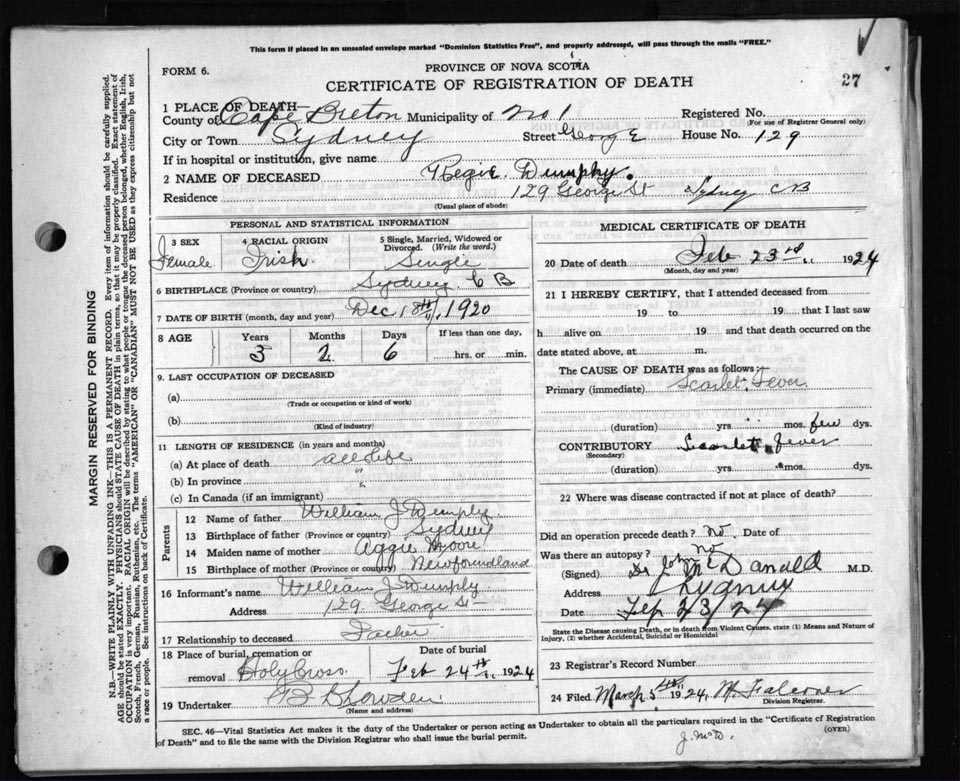 This form if placed in an unsealed envelope marked "Dominion Statistics Free", and properly addressed, will pass through the mails "FREE."
FORM 6.
PROVINCE OF NOVA SCOTIA
CERTIFICATE OF REGISTRATION OF DEATH
27
1 PLACE OF DEATH—
County of Cape Breton Municipality of No 1 Registered No.
(For use of Registrar General only)
City or Town Sydney Street George House No. 129
If in hospital or institution, give name
2 NAME OF DECEASED Regie Dumphy.
Residence 129 George St Sydney C B
(Usual place of abode)
PERSONAL AND STATISTICAL INFORMATION
3 SEX 4 RACIAL ORIGIN 5 Single, Married, Widowed or Divorced. (Write the word.)
Female Irish Single
6 BIRTHPLACE (Province or country) Sydney C B
7 DATE OF BIRTH (month, day and year) Dec 18th 1920
8 AGE Years Months Days If less than one day,
3 2 6 hrs. or min.
9. LAST OCCUPATION OF DECEASED
(a)
(Trade or occupation or kind of work)
(b)
(Kind of industry)
11 LENGTH OF RESIDENCE (in years and months)
(a) At place of death all life
(b) In province "
(c) In Canada (if an immigrant) "
Parents
12 Name of father William J Dumphy
13 Birthplace of father (Province or country) Sydney
14 Maiden name of mother Aggie Moore
15 Birthplace of mother (Province or country) Newfoundland
16 Informant's name William J Dumphy
Address 129 George St
17 Relationship to deceased Father
18 Place of burial, cremation or removal Holy Cross Date of burial Feb 24th 1924
19 Undertaker
(Name and address)
MEDICAL CERTIFICATE OF DEATH
20 Date of death Feb 23rd 1924
(Month, day and year)
21 I HEREBY CERTIFY, that I attended deceased from
19 to 19 that I last saw
h alive on 19 and that death occurred on the
date stated above, at m.
The CAUSE OF DEATH was as follows:
Primary (immediate) Scarlet Fever
(duration) yrs mos. few dys.
CONTRIBUTORY Scarlet fever
(Secondary)
(duration) yrs mos. dys.
22 Where was disease contracted if not at place of death?
Did an operation precede death? No. Date of
Was there an autopsy? no
(Signed) Dr John McDonald M.D.
Address Sydney
Date Feb 23/24
State the Disease causing Death, or in death from Violent Causes, state (1) Means and Nature of
Injury, (2) whether Accidental, Suicidal or Homicidal
23 Registrar's Record Number
24 Filed March 5th 1924,
Division Registrar.
SEC. 46—Vital Statistics Act makes it the duty of the Undertaker or person acting as Undertaker to obtain all the particulars required in the "Certificate of Registration
of Death" and to file the same with the Division Registrar who shall issue the burial permit.
(OVER)
MARGIN RESERVED FOR BINDING
N.B.—WRITE PLAINLY WITH UNFADING INK—THIS IS A PERMANENT RECORD. Every item of information should be carefully supplied.
AGE should be stated EXACTLY. PHYSICIANS should STATE CAUSE OF DEATH in plain terms, so that it may be properly classified. Exact statement of
OCCUPATION is very important. RACIAL ORIGIN will be described by stating to what people or tongue the deceased person belonged, whether English, Irish,
Scotch, French, German, Russian, Ruthenian, etc. The terms "AMERICAN" OR "CANADIAN" MUST NOT BE USED as they express citizenship but not
a race or people. See instructions on back of Certificate.